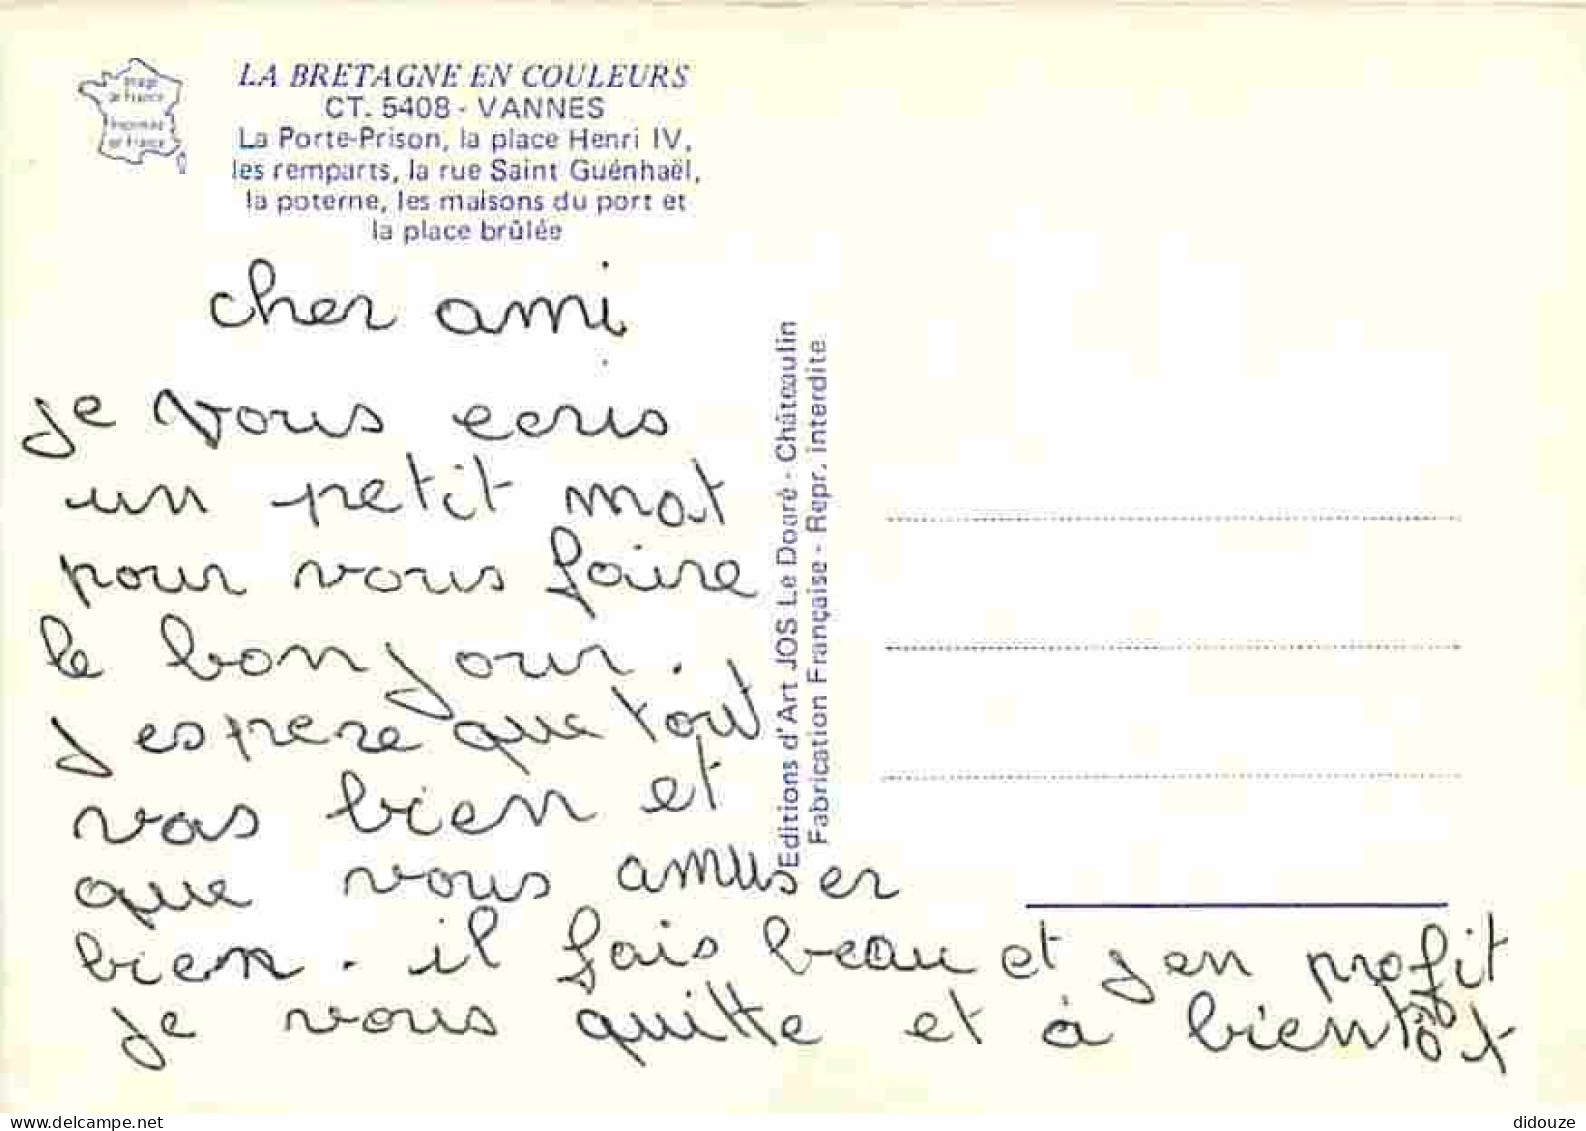 Image
de France
Imprimée
en France
LA BRETAGNE EN COULEURS
CT. 5408 - VANNES
La Porte-Prison, la place Henri IV,
les remparts, la rue Saint Guénhaël,
la poterne, les maisons du port et
la place brûlée
cher ami
je vous ecris
un petit mot
pour vous faire
le bonjour.
j espere que tout
vas bien et
que vous amuser
bien. il fais beau et j en profit
je vous quitte et à bientôt
Editions d'Art JOS Le Doaré - Châteaulin
Fabrication Française - Repr. interdite
didouze